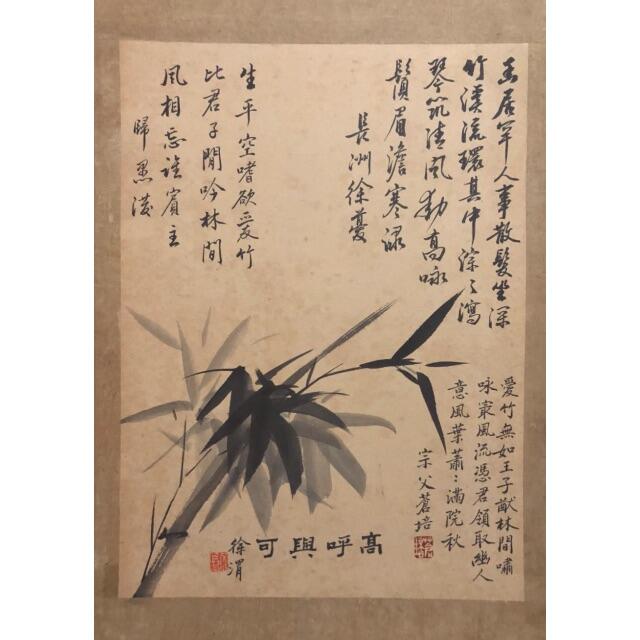 幽居罕人事散髮坐深
竹溪流環其中淙淙瀉
琴筑清風動高咏
鬚眉澹寒淥
長洲徐夔
生平空嗜欲愛竹
比君子閒吟林間
風相忘誰賓主
歸愚潛
愛竹無如王子猷林間嘯
咏最風流憑君領取幽人
意風葉蕭〻滿院秋
宗父蒼培
高呼與可
徐渭